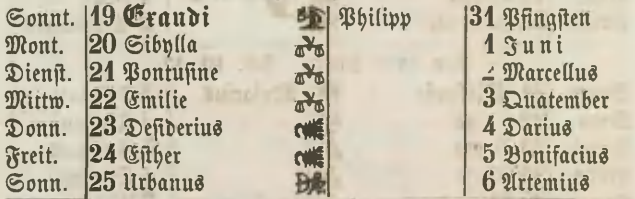 Sonnt. 19 Exaudi Philipp 31 Pfingſten
Mont. 20 Sibylla 1 Juni
Dienſt. 21 Pontuſine 2 Marcellus
Mittw. 22 Emilie 3 Quatember
Donn. 23 Deſiderius 4 Darius
Freit. 24 Eſther 5 Bonifacius
Sonn. 25 Urbanus 6 Artemius